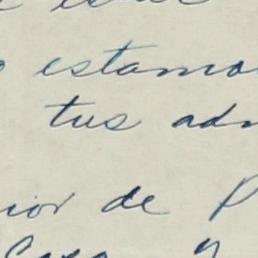 estamo
tus adm
ior de P
Casa y